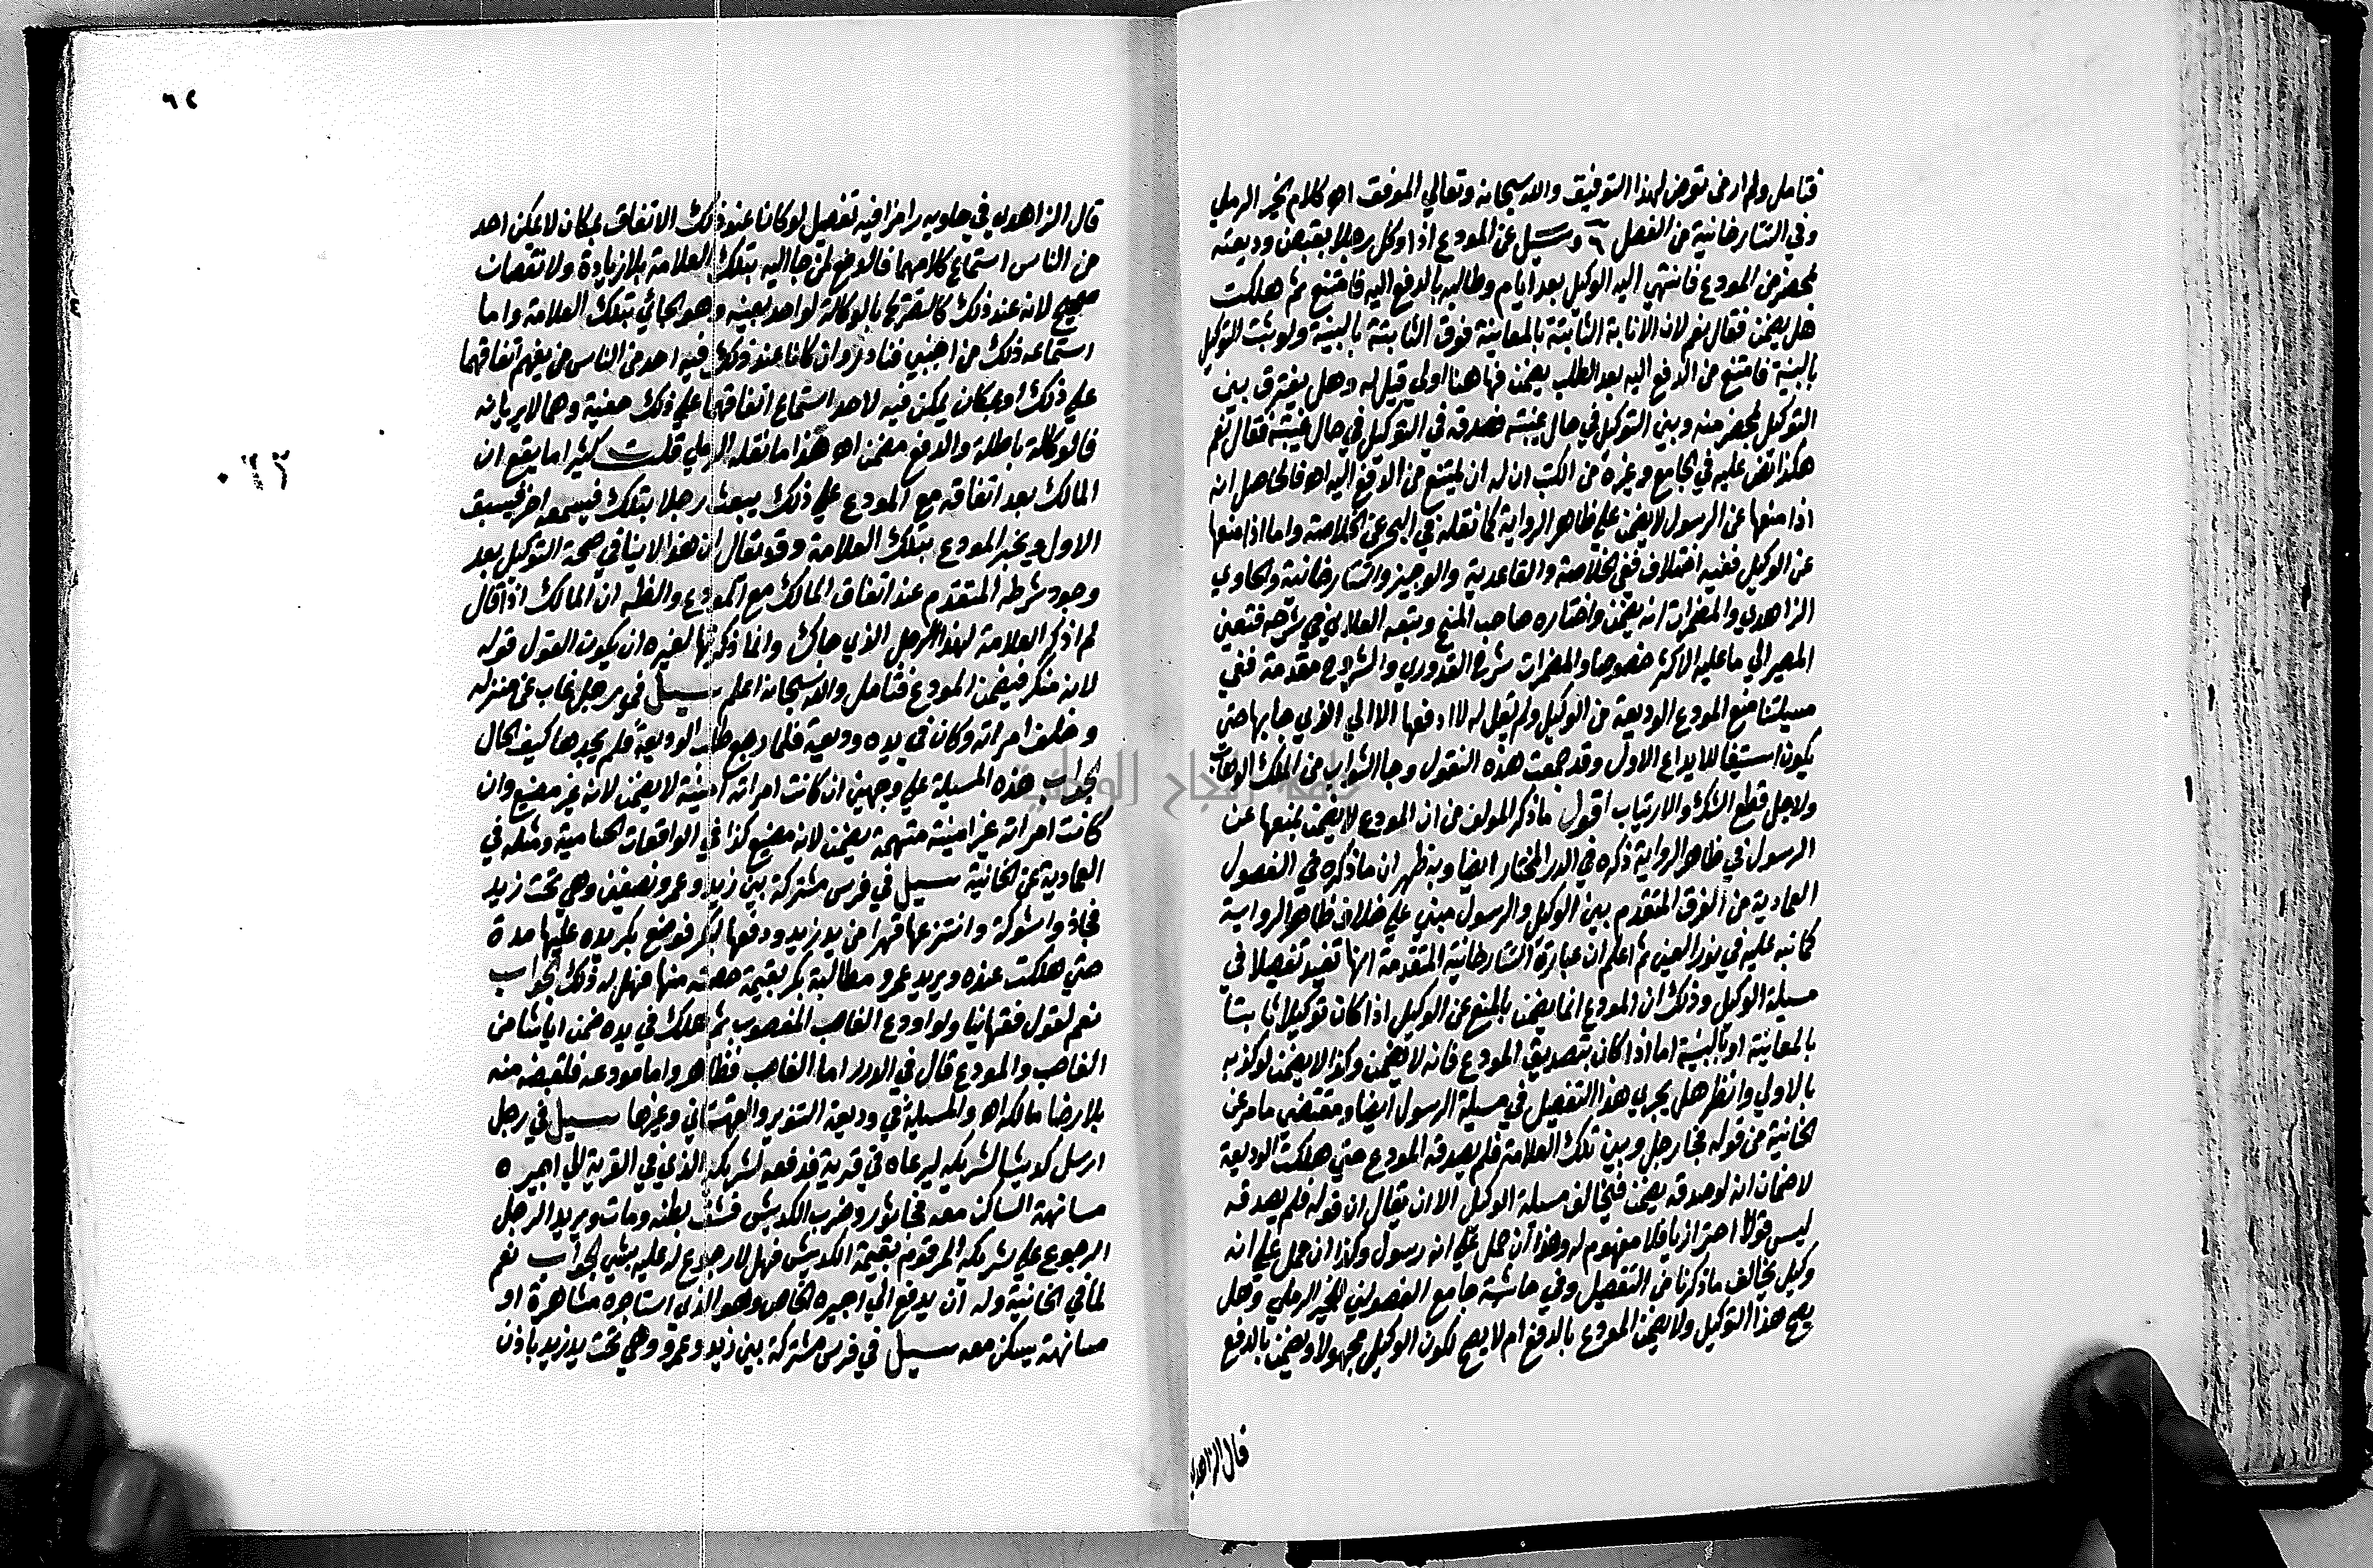 فتامل ولم ار من تعرض لهذا التوفيق والله سبحانه وتعالي الموفق اهـ كلام الخير الرملي
وفي التتارخانية من الفصل ٦ وسيل عن المودع اذا وكل رجلا بقبض وديعته
بمحضر من المودع فانتهي اليه الوكيل بعد ايام وطالبه بالدفع اليه فامتنع ثم هلكت
هل يضمن فقال نعم لان الانابة الثابتة بالمعاينة فوق الثابتة بالبينة ولو ثبت التوكيل
بالبينة فامتنع من الدفع اليه بعد الطلب يضمن فها هنا اولي قيل له وهل يفترق بين
التوكيل بمحضر منه وبين التوكيل في حال غيبته فصدقه في التوكيل في حال غيبته فقال نعم
هكذا نص عليه في الجامع وغيره من الكتب ان له ان يمتنع من الدفع اليه اهـ فالحاصل انه
اذا منعها عن الرسول لا يضمن علي ظاهر الرواية كما نقله في البحر عن الخلاصة واما اذا منعها
عن الوكيل ففيه اختلاف ففي الخلاصة والقاعدية والوجيز والتتارخانية والحاوي
الزاهدي والمضمرات انه يضمن واختاره صاحب المنح وتبعه العلائي في شرحه فتعين
المصير الي ما عليه الاكثر خصوصا والمضمرات شرح القدوري والشروح مقدمة ففي
مسيلتنا منع المودع الوديعة من الوكيل ولم يقل له لا ادفعها الا الي الذي جا بها حتي
يكون استيفا للايداع الاول وقد جمعت هذه النقول وجا الثواب من الملك الوهاب
ولاجل قطع الشك والارتياب اقول ما ذكر المولف من ان المودع لا يضمن بمنعها عن
الرسول في ظاهر الرواية ذكره في الدر المختار ايضا وبه ظهر ان ما ذكره في الفصول
العمادية من الفرق المتقدم بين الوكيل والرسول مبني علي خلاف ظاهر الرواية
كما نبه عليه في نور العين ثم اعلم ان عبارة التتارخانية المتقدمة انها تفيد تفصيلا في
مسيلة الوكيل وذلك ان المودع انما يضمن بالمنع عن الوكيل اذا كان توكيلا ثابتا
بالمعاينة او بالبينة اما اذا كان بتصديق المودع فانه لا يضمن وكذا لا يضمن لو كذبه
بالاولي وانظر هل يجري هذا التفصيل في مسيلة الرسول ايضا ومقتضي ما مر عن
الخانية من قوله فجا رجل وبين تلك العلامة فلم يصدقه المودع حتي هلكت الوديعة
لا ضمان انه لو صدقه يضمن فيخالف مسيلة الوكيل الا ان يقال ان قوله فلم يصدقه
ليس قولا احترازيا فلا مفهوم له وهذا ان حمل علي انه رسول وكذا ان حمل علي انه
وكيل يخالف ما ذكرنا من التفصيل وفي حاشية جامع الفصولين للخير الرملي وهل
يصح هذا التوكيل ولا يضمن المودع بالدفع ام لا يصح لكون الوكيل مجهولا ويضمن بالدفع
قال الزاهدي
٦٢
٠٦٢
قال الزاهدي في حاويه رامزا فيه تفصيل لو كانا عند ذلك الاتفاق بمكان لا يمكن احد
من الناس استماع كلامهما فالدفع لمن جا اليه بتلك العلامة بلا زيادة ولا نقصان
صحيح لانه عند ذلك كالتصريح بالوكالة لواحد بعينه وهو الجائي بتلك العلامة واما
استماعه ذلك من اجنبي فنادر وان كانا عند ذلك فيه احد من الناس من يفهم اتفاقهما
علي ذلك او بمكان يمكن فيه لاحد استماع اتفاقهما علي ذلك خفية وهما لا يريانه
فالوكالة باطلة والدفع مضمن اهـ هذا ما نقله الرملي قلت كثيرا ما يقع ان
المالك بعد اتفاقه مع المودع علي ذلك يبعث رجلا بتلك فيسمعه اخر فيسبق
الاول ويخبر المودع بتلك العلامة وقد يقال ان هذا لا ينافي صحة التوكيل بعد
وجود شرطه المتقدم عند اتفاق المالك مع المودع والظاهر ان المالك اذا قال
لم اذكر العلامة لهذا الرجل الذي جاك وانما ذكرتها لغيره ان يكون القول قوله
لانه منكر فيضمن المودع فتامل والله سبحانه اعلم سيل في رجل غاب عن منزله
وخلف امراته وكان في يده وديعة فلما رجع طلب الوديعة فلم يجدها كيف الحال
الجواب هذه المسيلة علي وجهين ان كانت امراته امينة لا يضمن لانه غير مضيع وان
كانت امراته غير امينة متهمة يضمن لانه مضيع كذا في الواقعات الحسامية ومثله في
العمادية عن الخانية سيل في فرس مشتركة بين زيد وعمرو نصفين وهي تحت زيد
فجا ذو شوكة وانتزعها قهرا من يد زيد ودفعها لبكر فوضع بكر يده عليها مدة
حتي هلكت عنده ويريد عمرو مطالبة بكر بقيمة حصته منها فهل له ذلك الجواب
نعم لقول فقهائنا ولو اودع الغاصب المغصوب ثم هلك في يده ضمن ايا شا من
الغاصب والمودع قال في الدرر اما الغاصب فظاهر واما مودعه فلقبضه منه
بلا رضا مالكه اهـ والمسيلة في وديعة التنوير والقهستاني وغيرها سيل في رجل
ارسل كديشا لشريكه ليرعاه في قرية فدفعه لشريكه الذي في القرية الي اجيره
مسانهة الساكن معه فجا ثور وضرب الكديش فشق بطنه ومات ويريد الرجل
الرجوع علي شريكه المرقوم بقيمة الكديش فهل لا رجوع له عليه بشي الجواب نعم
لما في الخانية وله ان يدفع الي اجيره الخاص وهو الذي استاجره مشاهرة او
مسانهة يسكن معه سيل في فرس مشتركة بين زيد وعمرو وهي تحت يد زيد باذن
جامعة النجاح الوطنية